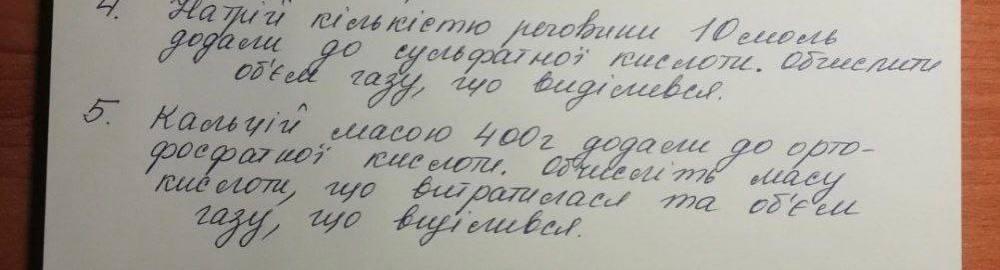 4. Натрій кількістю речовини 10 моль
додали до сульфатної кислоти. Обчислити
об'єм газу, що виділився.
5. Кальцій масою 400г додали до орто-
фосфатної кислоти. Обчисліть масу
кислоти, що витратилася та об'єм
газу, що виділився.